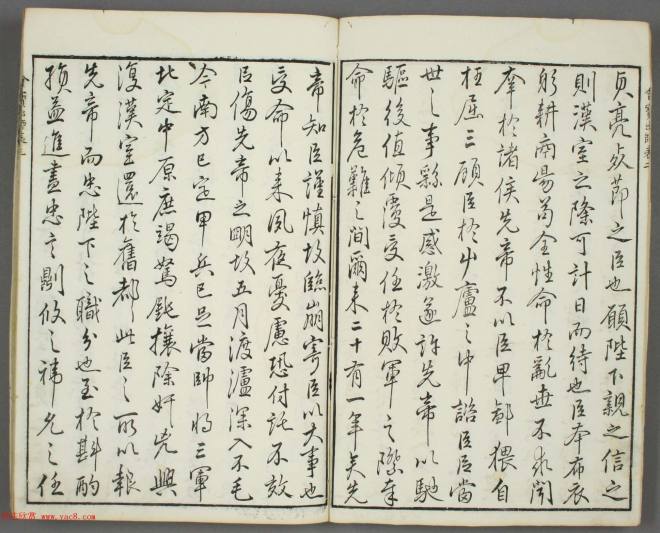 貞亮死節之臣也願陛下親之信之
則漢室之隆可計日而待也臣本布衣
躬耕南陽苟全性命於亂世不求聞
達於諸侯先帝不以臣卑鄙猥自
枉屈三顧臣於草廬之中諮臣以當
世之事繇是感激遂許先帝以馳
驅後值傾覆受任於敗軍之際奉
命於危難之間爾來二十有一年矣先
帝知臣謹慎故臨崩寄臣以大事也
受命以來夙夜憂慮恐付託不效
以傷先帝之明故五月渡瀘深入不毛
今南方已定甲兵已足當帥將三軍
北定中原庶竭駑鈍攘除奸兇興
復漢室還於舊都此臣之所以報
先帝而忠陛下之職分也至於斟酌
損益進盡忠言則攸之禕允之任
www.yac8.com